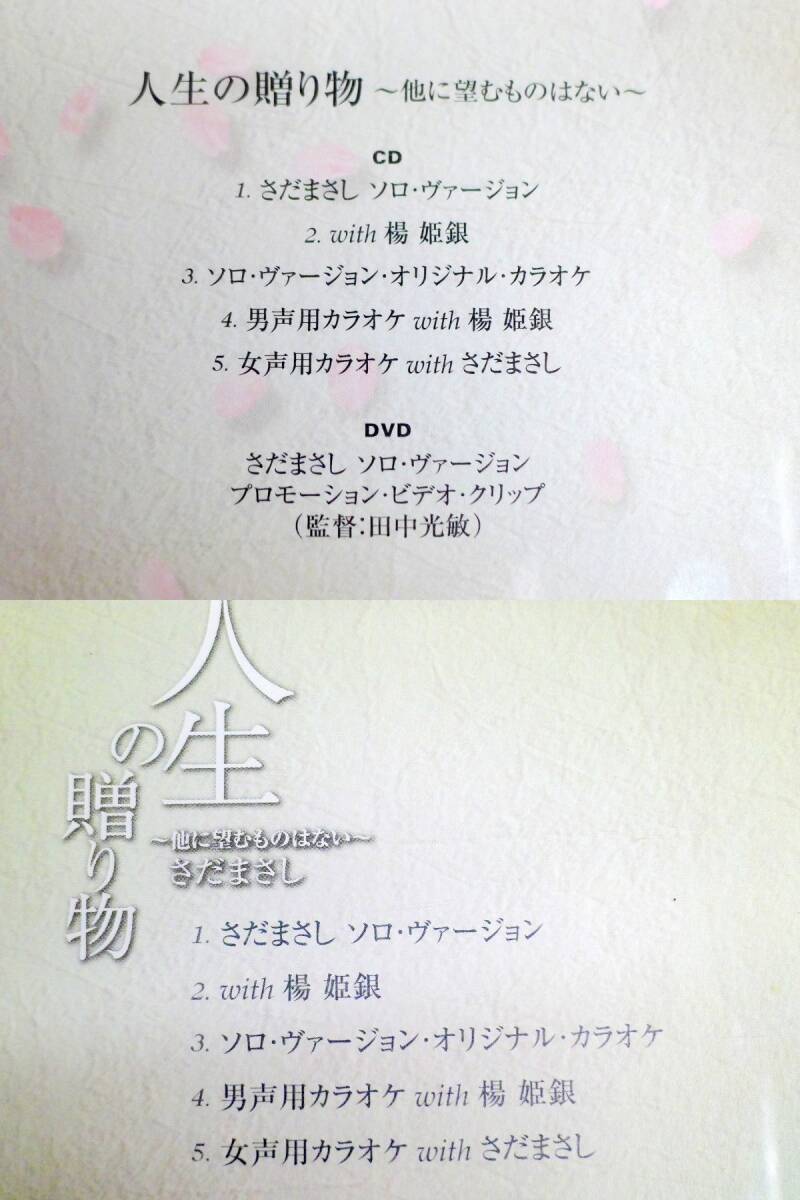 人生の贈り物 ～他に望むものはない～
CD
1. さだまさし ソロ・ヴァージョン
2. with 楊 姫銀
3. ソロ・ヴァージョン・オリジナル・カラオケ
4. 男声用カラオケ with 楊 姫銀
5. 女声用カラオケ with さだまさし
DVD
さだまさし ソロ・ヴァージョン
プロモーション・ビデオ・クリップ
（監督：田中光敏）
人生
の贈り物
～他に望むものはない～
さだまさし
1. さだまさし ソロ・ヴァージョン
2. with 楊 姫銀
3. ソロ・ヴァージョン・オリジナル・カラオケ
4. 男声用カラオケ with 楊 姫銀
5. 女声用カラオケ with さだまさし